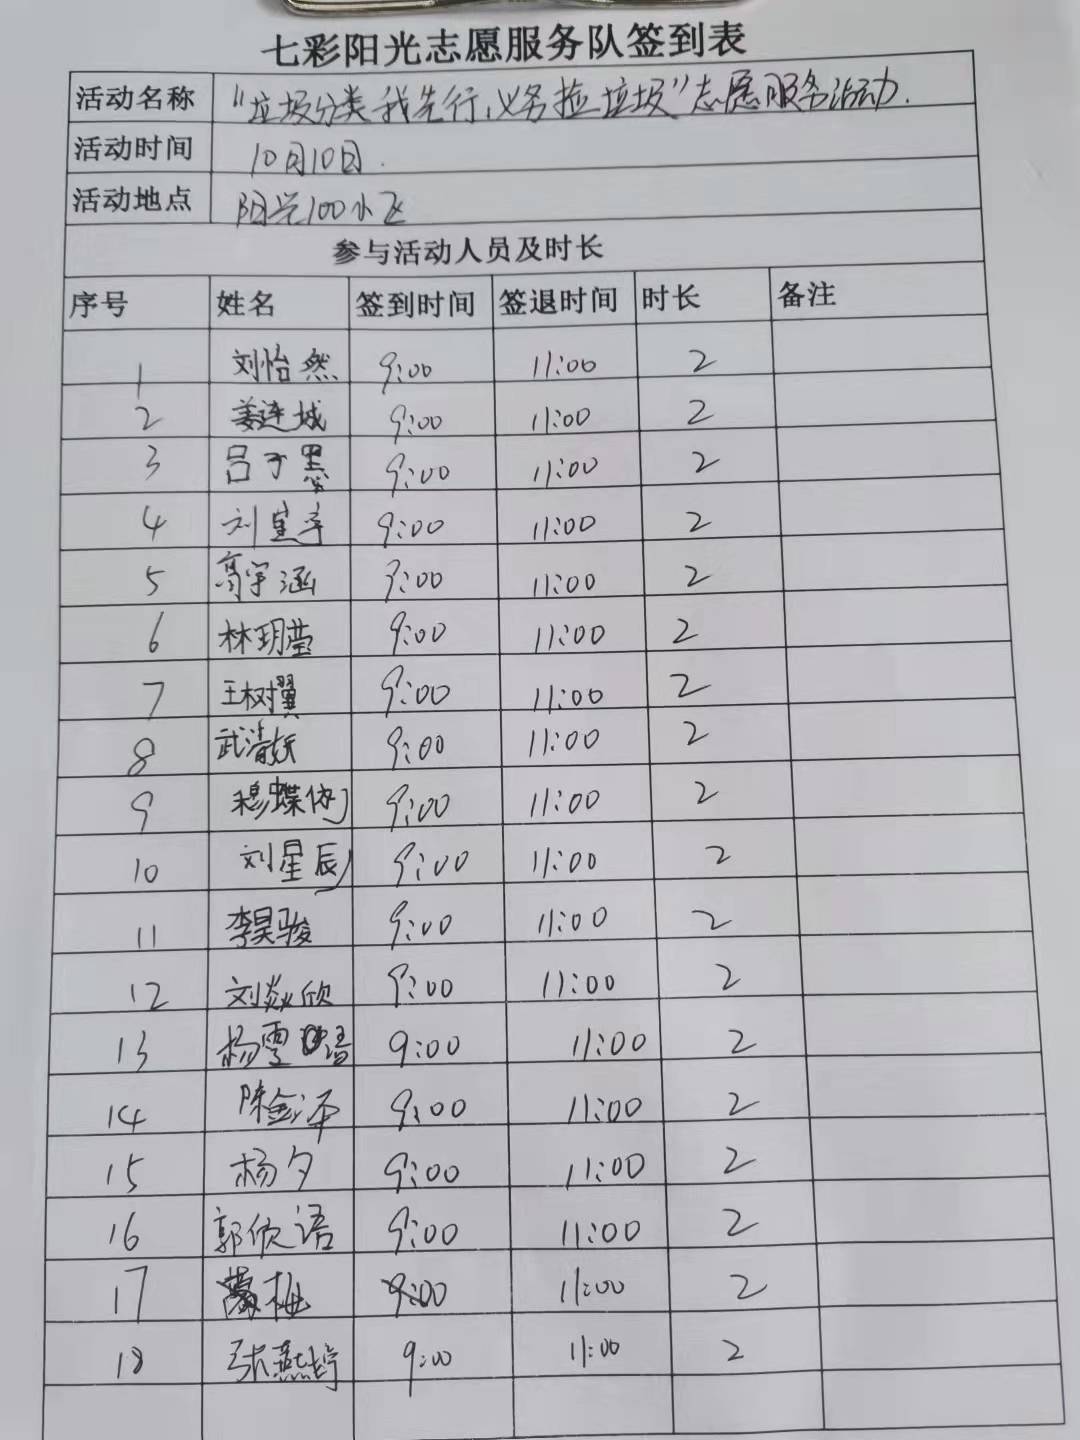 七彩阳光志愿服务队签到表
活动名称 "垃圾分类我先行,义务捡垃圾"志愿服务活动.
活动时间 10月10日.
活动地点 阳光100小区
参与活动人员及时长
序号 姓名 签到时间 签退时间 时长 备注
1 刘怡然 9:00 11:00 2
2 姜连城 9:00 11:00 2
3 吕子墨 9:00 11:00 2
4 刘宣宇 9:00 11:00 2
5 高宇涵 9:00 11:00 2
6 林玥莹 9:00 11:00 2
7 王树翼 9:00 11:00 2
8 武清妍 9:00 11:00 2
9 穆蝶依 9:00 11:00 2
10 刘星辰 9:00 11:00 2
11 李昊骏 9:00 11:00 2
12 刘焱欣 9:00 11:00 2
13 杨雯 9:00 11:00 2
14 陈金泽 9:00 11:00 2
15 杨夕 9:00 11:00 2
16 郭欣语 9:00 11:00 2
17 9:00 11:00 2
18 张燕婷 9:00 11:00 2